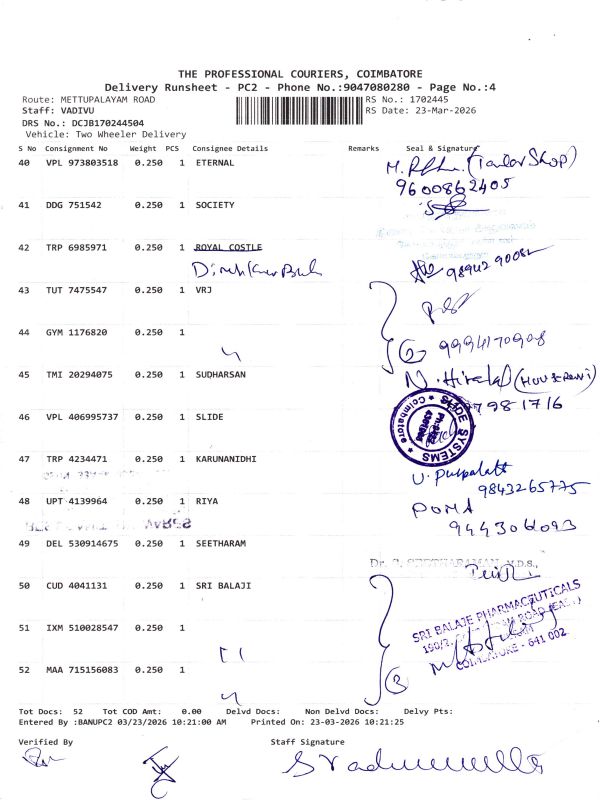 THE PROFESSIONAL COURIERS, COIMBATORE
Delivery Runsheet - PC2 - Phone No.:9047080280 - Page No.:4
Route: METTUPALAYAM ROAD RS No.: 1702445
Staff: VADIVU RS Date: 23-Mar-2026
DRS No.: DCJB170244504
Vehicle: Two Wheeler Delivery
S No Consignment No Weight PCS Consignee Details Remarks Seal & Signature
40 VPL 973803518 0.250 1 ETERNAL (Tailor Shop)
9600862405
41 DDG 751542 0.250 1 SOCIETY
42 TRP 6985971 0.250 1 ROYAL COSTLE
9894290082
43 TUT 7475547 0.250 1 VRJ
44 GYM 1176820 0.250 1
2 9994170908
45 TMI 20294075 0.250 1 SUDHARSAN N. Hiralal
81716
46 VPL 406995737 0.250 1 SLIDE
SLIDE SYSTEMS
Coimbatore
47 TRP 4234471 0.250 1 KARUNANIDHI
9843265775
48 UPT 4139964 0.250 1 RIYA
49 DEL 530914675 0.250 1 SEETHARAM
Dr. M.D.S.,
50 CUD 4041131 0.250 1 SRI BALAJI
SRI BALAJE PHARMACEUTICALS
COIMBATORE - 641 002
51 IXM 510028547 0.250 1
52 MAA 715156083 0.250 1
3
Tot Docs: 52 Tot COD Amt: 0.00 Delvd Docs: Non Delvd Docs: Delvy Pts:
Entered By :BANUPC2 03/23/2026 10:21:00 AM Printed On: 23-03-2026 10:21:25
Verified By Staff Signature